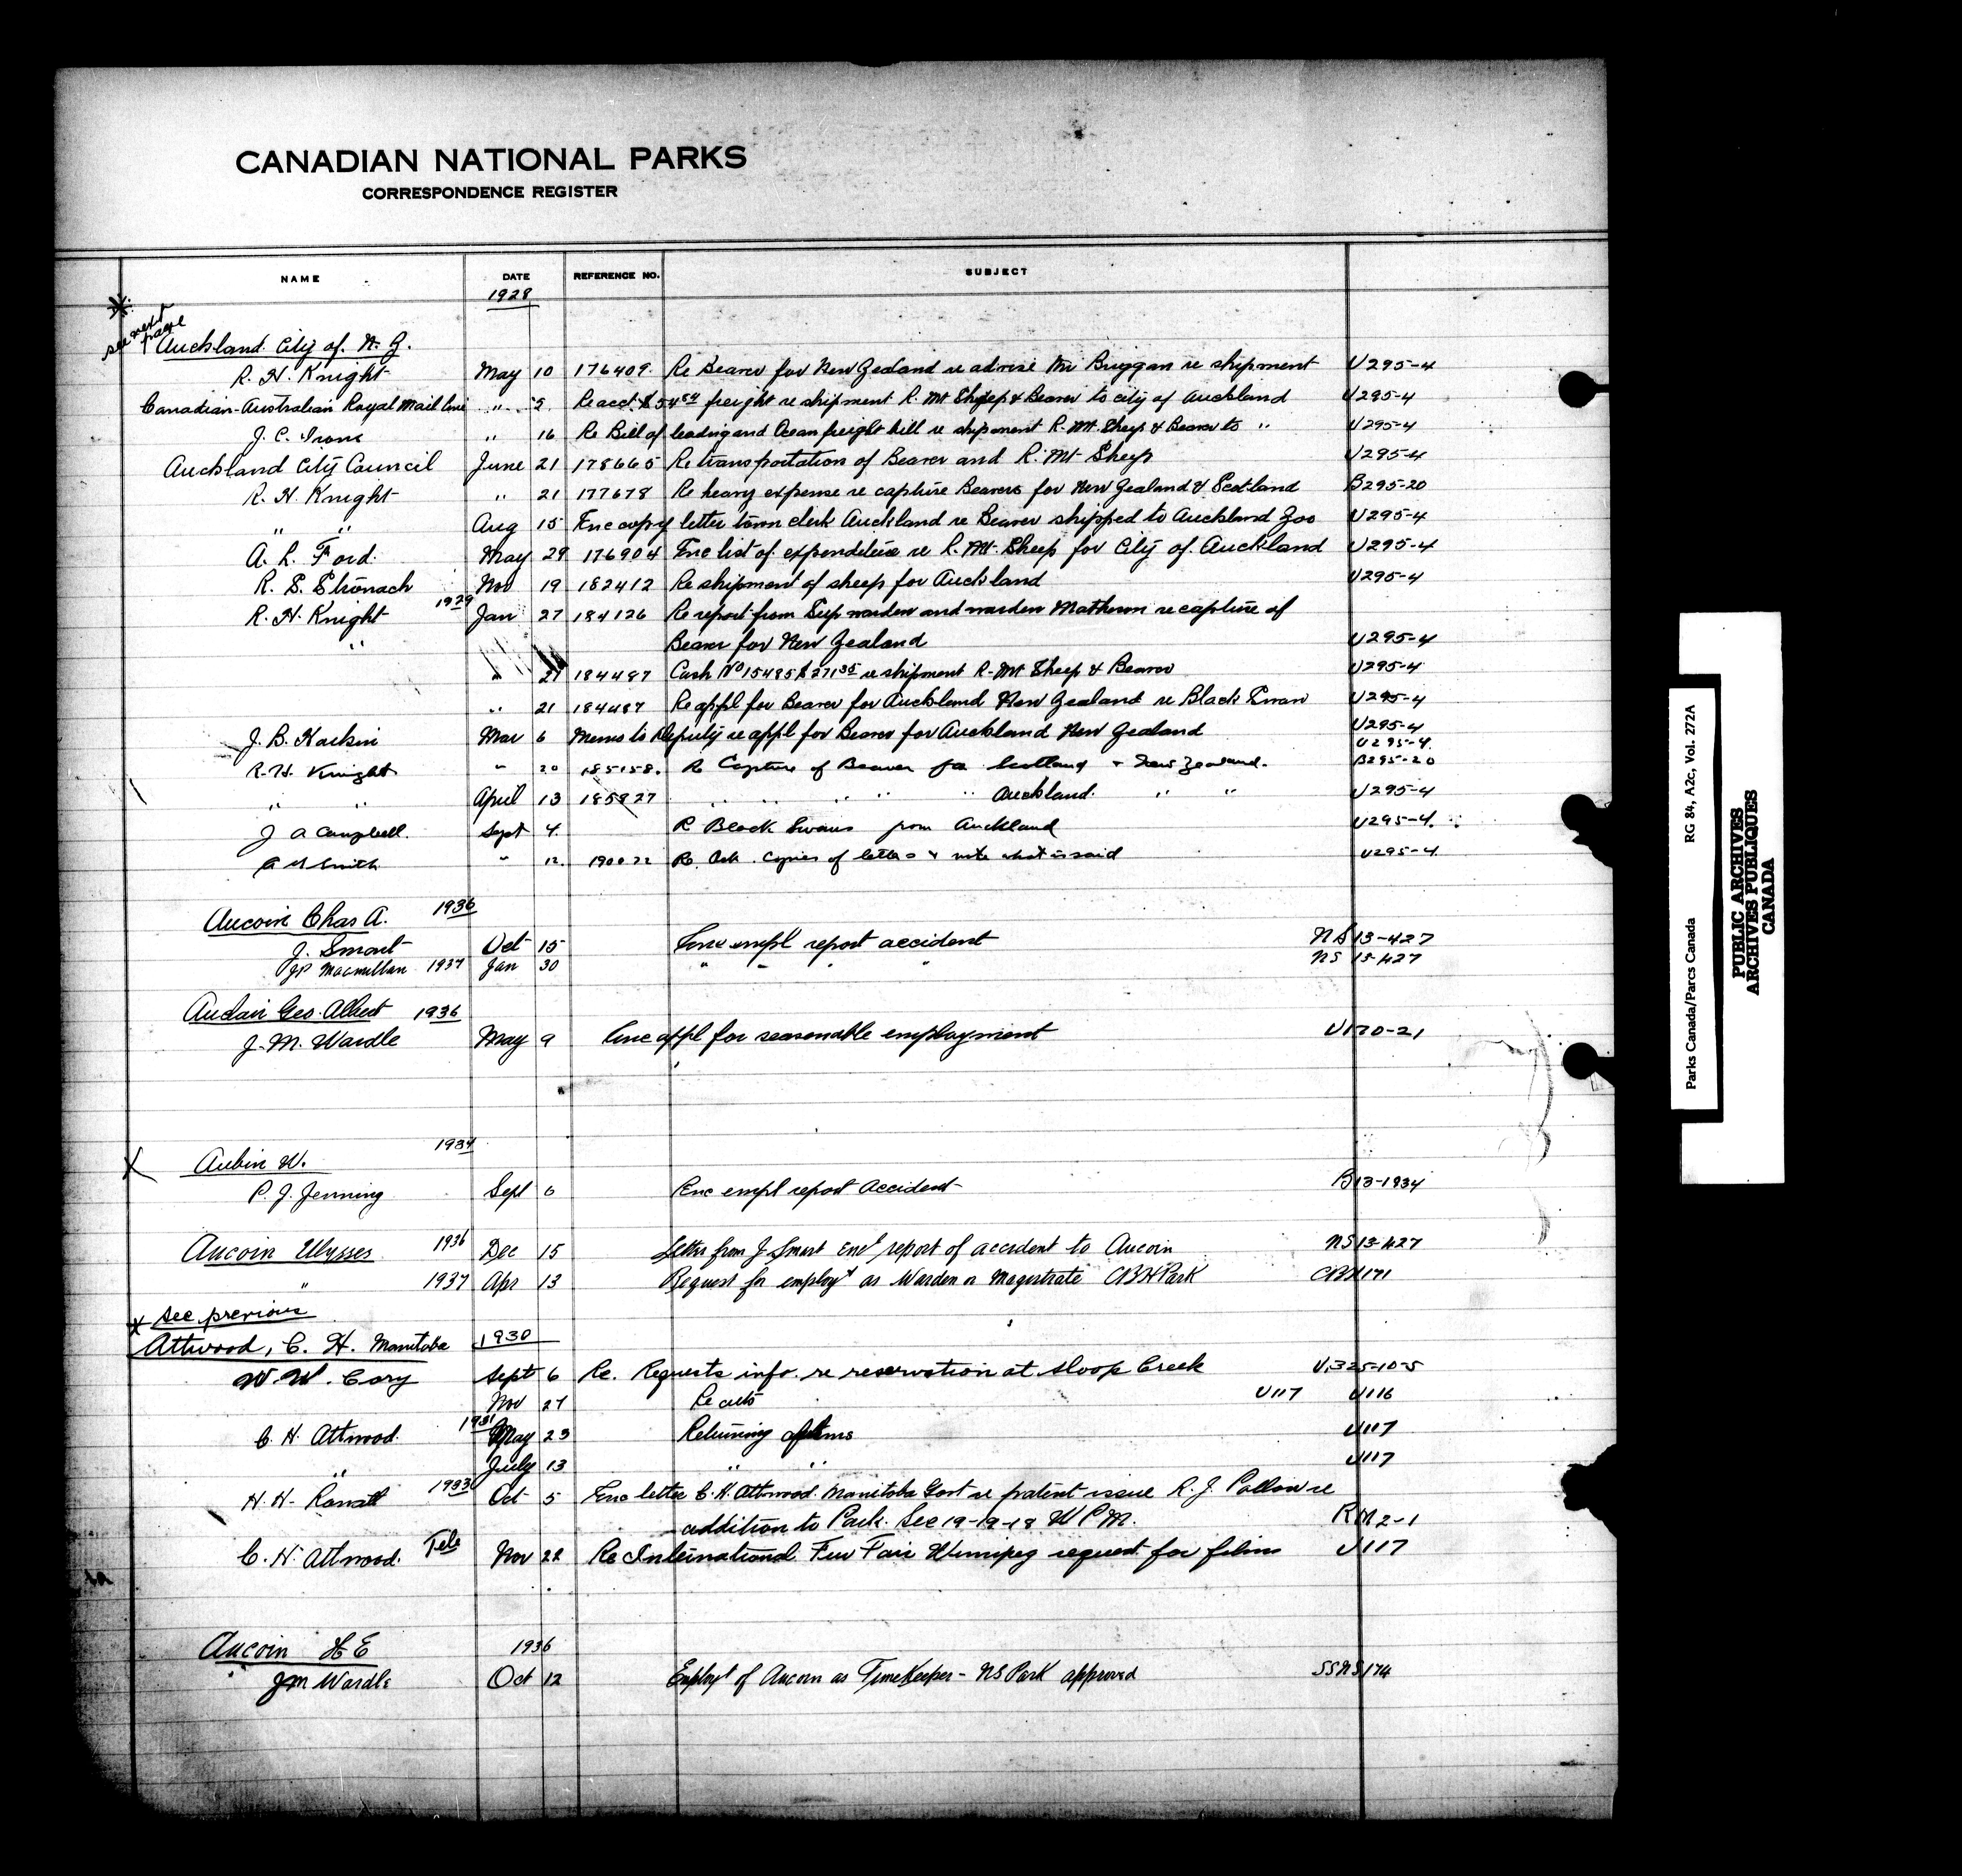 CANADIAN NATIONAL PARKS
CORRESPONDENCE REGISTER
NAME DATE REFERENCE NO. SUBJECT
1928
see next page
Auckland City of. N. Z.
R. H. Knight May 10 176409. Re Beaver for New Zealand re advise Mr Buggan re shipment U295-4
Canadian-Australian Royal Mail Line " 5 Re acct $54 freight re shipment R. Mt Sheep & Beaver to city of Auckland U295-4
J. C. Irons " 16 Re Bill of leading and Ocean freight bill re shipment R. Mt. Sheep & Beaver to " U295-4
Auckland City Council June 21 178665 Re transportation of Beaver and R. Mt Sheep U295-4
R. H. Knight " 21 177678 Re heavy expense re capture Beavers for New Zealand & Scotland B295-20
" " Aug 15 Enc copy letter town clerk Auckland re Beaver shipped to Auckland Zoo U295-4
A. L. Ford. May 29 176904 Enc list of expenditure re R. Mt. Sheep for City of Auckland U295-4
R. S. Stronach Nov 19 182412 Re shipment of sheep for Auckland U295-4
R. H. Knight 1929 Jan 27 184126 Re report from Sup warden and warden Matheson re capture of
" Beaver for New Zealand U295-4
" 21 184487 Cash No 15485 $271.35 re shipment R. Mt Sheep & Beaver U295-4
" 21 184487 Re appl for Beaver for Auckland New Zealand re Black Swan U295-4
J. B. Harkin Mar 6 Memo to Deputy re appl for Beaver for Auckland New Zealand U295-4
U295-4.
R. H. Knight " 20 185158. Re Capture of Beaver for Scotland & New Zealand. B295-20
" " April 13 185827 " " " " " Auckland. " " U295-4
J A Campbell. Sept 4. R Black Swans from Auckland U295-4.
Smith " 12. 190022 Re. Ack. Copies of letters & note what is said U295-4.
Aucoin Chas A. 1936
J. Smart Oct 15 Enc empl report accident NS13-427
JP Macmillan 1937 Jan 30 " " " " NS 13-427
Auclair Geo. Albert 1936
J. M. Wardle May 9 Enc appl for seasonable employment U170-21
Aubin W. 1934
P. J. Jenning Sept 6 Enc empl report Accident B13-1934
Aucoin Ulysses 1936 Dec 15 Letter from J Smart Encl report of accident to Aucoin NS13-427
" 1937 Apr 13 Request for employt as Warden or Magistrate CBH Park CBH171
* see previous
Attwood, C. H. Manitoba 1930
W. W. Cory Sept 6 Re. Requests info. re reservation at Sloop Creek U325-10-5
Nov 27 Re cuts U117 U116
C. H. Attwood. 1931 May 23 Returning films U117
" July 13 " " U117
H. H. Rowatt 1933 Oct 5 Enc letter C. H. Attwood. Manitoba Govt re patent issue R. J. Pallow re
addition to Park. Sec 19-19-18 W P M. RM2-1
C. H. Attwood. Tele Nov 22 Re International Fur Fair Winnipeg request for films U117
Aucoin H E 1936
JM Wardle Oct 12 Employt of Aucoin as TimeKeeper - NS Park approved SSNS174
Parks Canada/Parcs Canada RG 84, A2c, Vol. 272A
PUBLIC ARCHIVES
ARCHIVES PUBLIQUES
CANADA